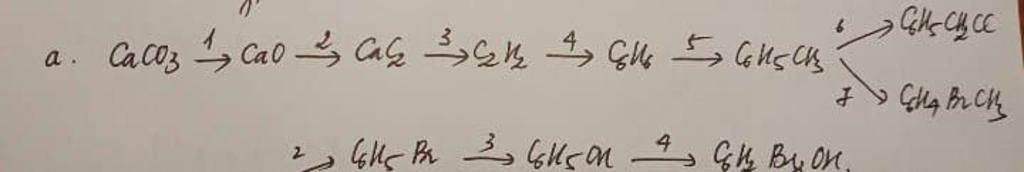 a. CaCO3 1→ CaO 2→ CaC2 3→ C2H2 4→ C6H6 5→ C6H5CH3 6→ C6H5CH2Cl
7→ C6H4BrCH3
2→ C6H5Br 3→ C6H5OH 4→ C6H2Br3OH.